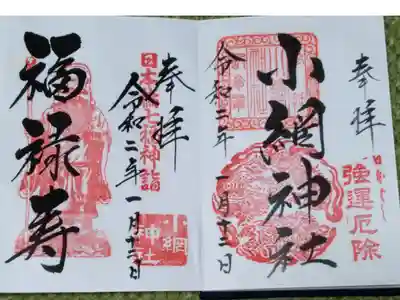 奉拝
強運厄除
小網神社
令和二年一月十三日
奉拝
日本橋七福神詣
令和二年一月十三日
小網神社
福禄寿